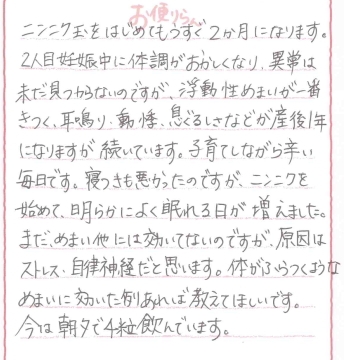 お便りらん
ニンニク玉をはじめてもうすぐ2か月になります。
2人目妊娠中に体調がおかしくなり、異常は
未だ見つからないのですが、浮動性めまいが一番
きつく、耳鳴り・動悸、息ぐるしさなどが産後1年
になりますが続いています。子育てしながら辛い
毎日です。寝つきも悪かったのですが、ニンニクを
始めて、明らかによく眠れる日が増えました。
まだ、めまい他には効いてないのですが、原因は
ストレス・自律神経だと思います。体がふらつくような
めまいに効いた例あれば教えてほしいです。
今は朝夕で4粒飲んでいます。